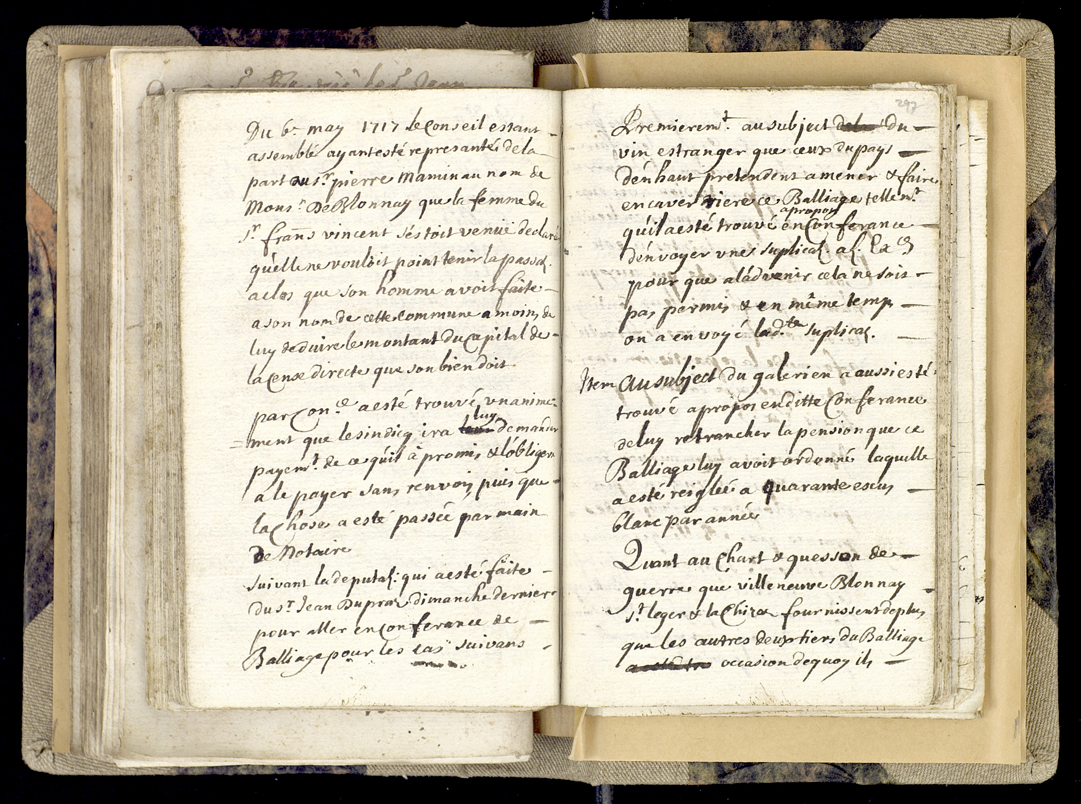 Du 6e may 1717 le Conseil estant
assemblé ayant esté represanté de la
part du Sr pierre Mamin au nom de
Monsr De Blonnay que la femme du
Sr frans vincent s'estoit venüe declare
qu'elle ne vouloit point tenir la passaõn
a clos que son homme avoit faite
a son nom de cette Commune a moins de
luy deduire le montant du Capital de
la Cense directe que son bien doit
par Conce a esté trouvé unanime-
=ment que le sindicq ira luy demander
payemt de ce qu'il à promis & l'obliger
a le payer sans renvoy puis que
la Chose a esté passée par main
de Notaire
suivant la deputaõn: qui a esté faite
du sr Jean Dupraz dimanche derniere
pour aller en Conferance de
Balliage pour les cas suivans
297
Premieremt. au subject du
vin estranger que ceux du pays
d'enhaut pretendent amener & faire
encaver riere ce Balliage tellemt
qu'il a esté trouvé apropos en Conferance
d'envoyer une suplicaõn a L. Exces
pour que a l'advenir cela ne soit
pas permis & en même temp
on a envoyé ladte suplicaõn.
Item Au subject du galerien a aussi esté
trouvé apropos en ditte Conferance
de luy retrancher la pension que ce
Balliage luy avoit ordonné laquelle
a esté reiglée a quarante escus
blanc par année
Quant au Chart & quesson de
guerre que villeneuve Blonnay
St leger & la Chiesa fournissent de plus
que les autres deux tiers du Balliage
occasion dequoy ils